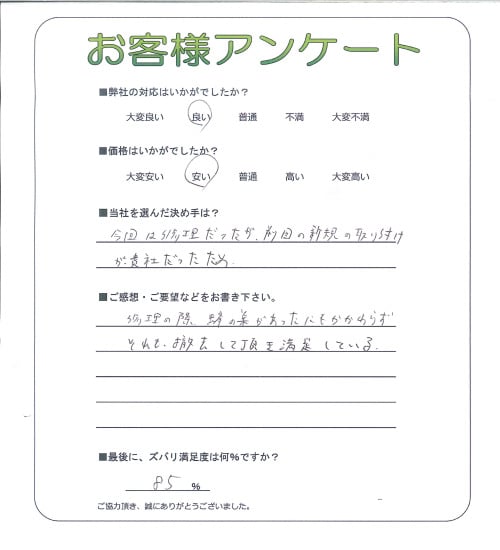 お客様アンケート
■弊社の対応はいかがでしたか？
大変良い 良い 普通 不満 大変不満
■価格はいかがでしたか？
大変安い 安い 普通 高い 大変高い
■当社を選んだ決め手は？
今回は修理だったが、前回の新規の取り付け
が貴社だったため。
■ご感想・ご要望などをお書き下さい。
修理の際、蜂の巣があったにもかかわらず
それも、撤去して頂き満足している。
■最後に、ズバリ満足度は何%ですか？
85 %
ご協力頂き、誠にありがとうございました。